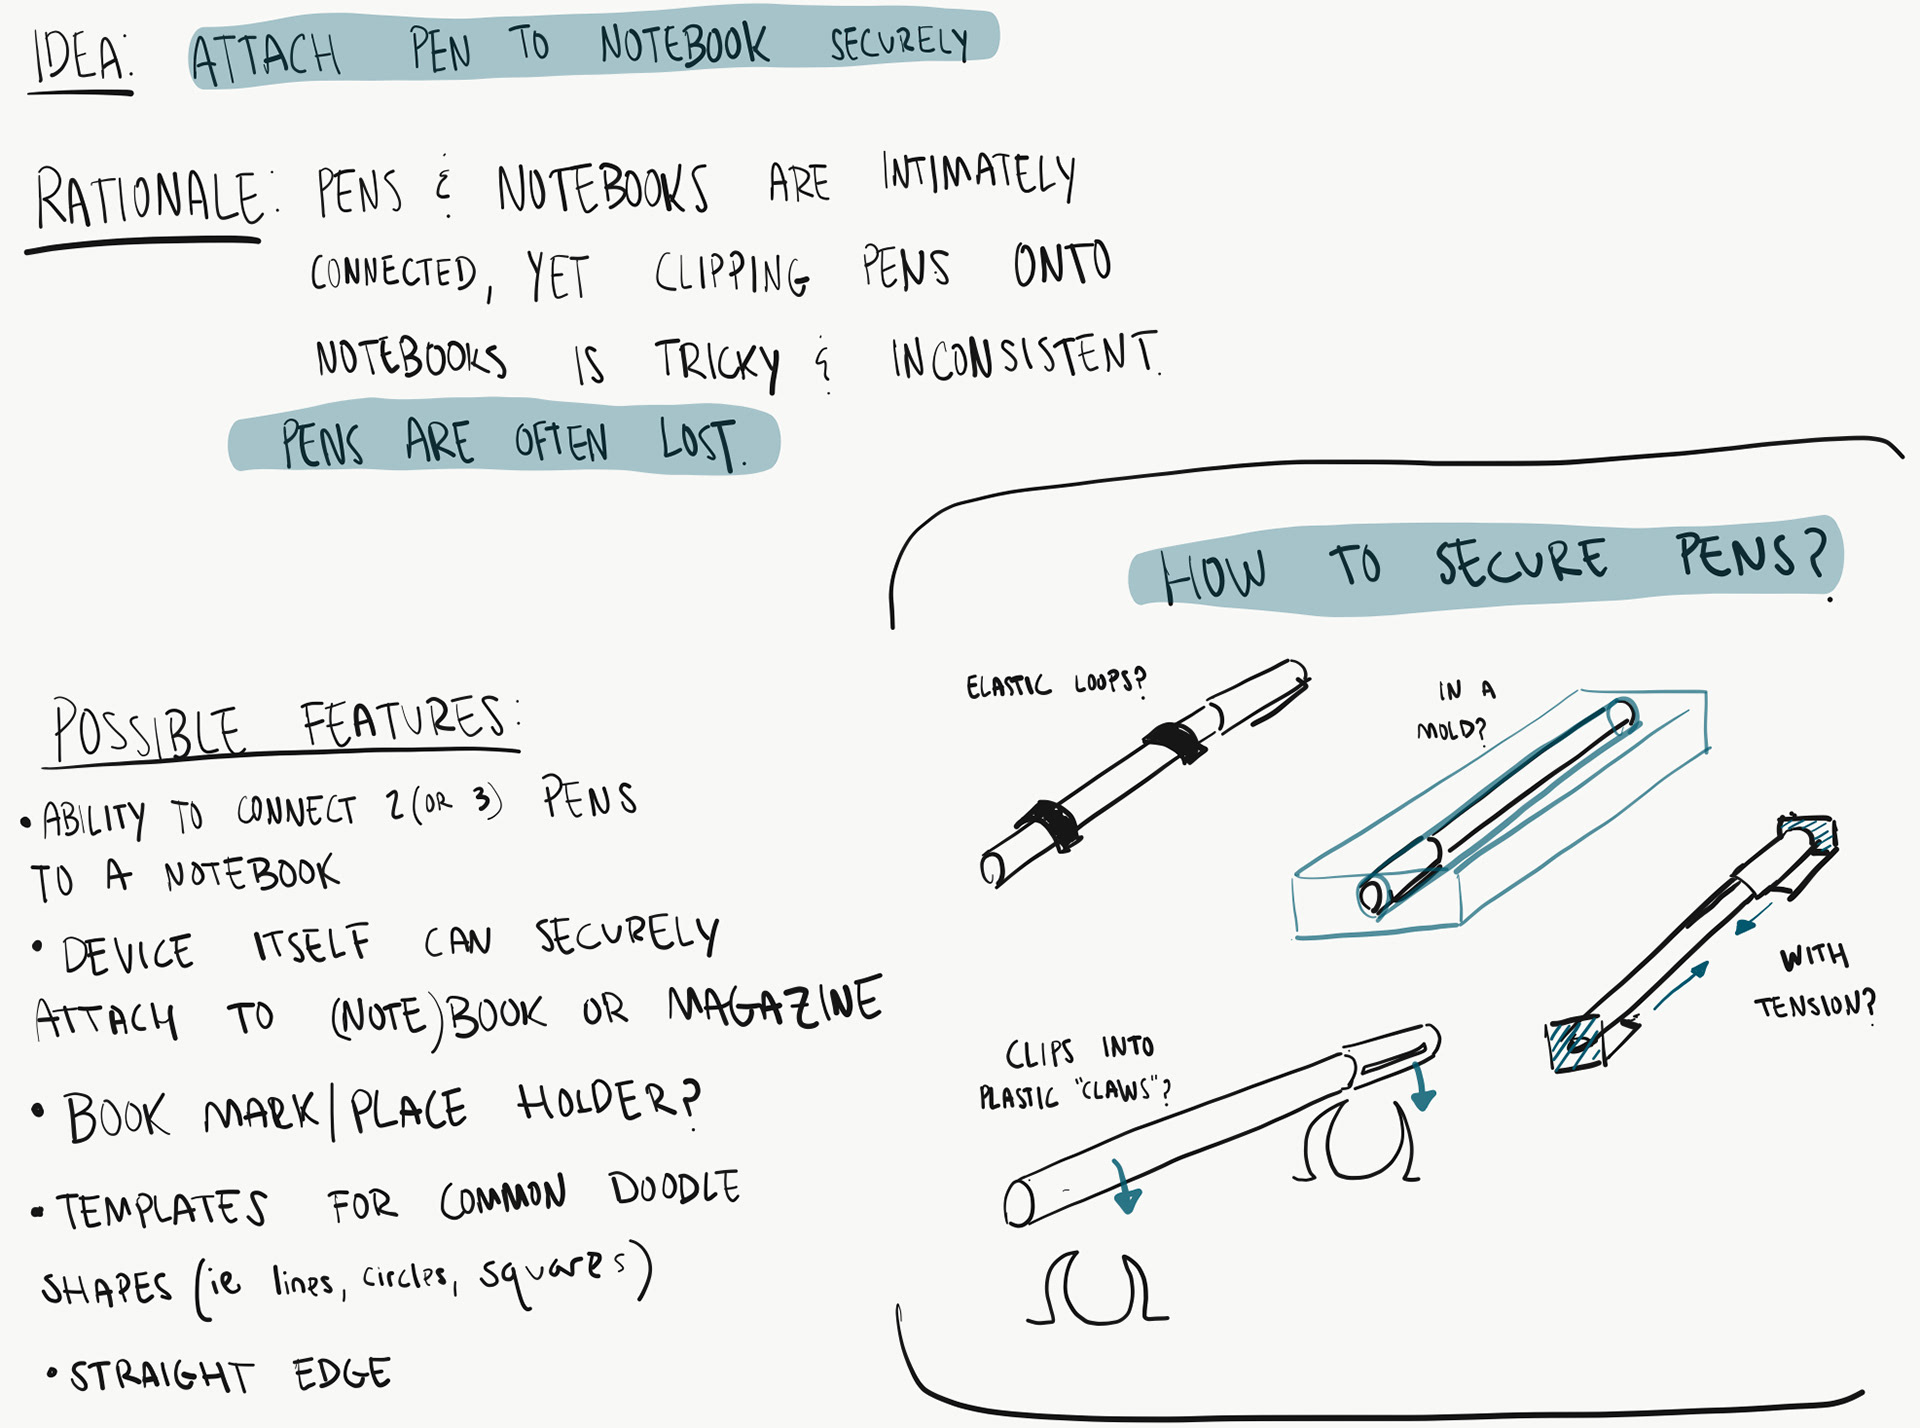 IDEA: ATTACH PEN TO NOTEBOOK SECURELY
RATIONALE: PENS & NOTEBOOKS ARE INTIMATELY
CONNECTED, YET CLIPPING PENS ONTO
NOTEBOOKS IS TRICKY & INCONSISTENT.
PENS ARE OFTEN LOST.
POSSIBLE FEATURES:
• ABILITY TO CONNECT 2 (OR 3) PENS
TO A NOTEBOOK
• DEVICE ITSELF CAN SECURELY
ATTACH TO (NOTE)BOOK OR MAGAZINE
• BOOK MARK/PLACE HOLDER?
• TEMPLATES FOR COMMON DOODLE
SHAPES (ie lines, circles, squares)
• STRAIGHT EDGE
HOW TO SECURE PENS?
ELASTIC LOOPS?
IN A
MOLD?
WITH
TENSION?
CLIPS INTO
PLASTIC "CLAWS"?